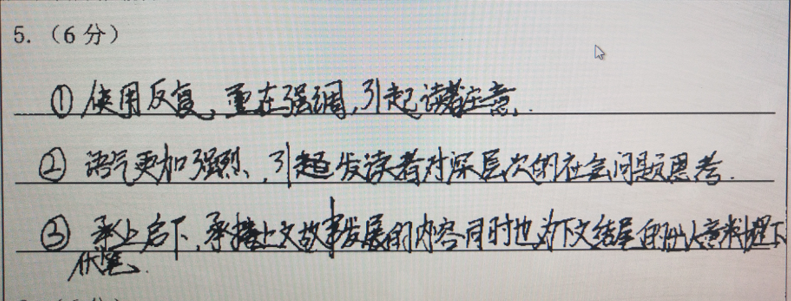 5.（6分）
①使用反复，重在强调，引起读者注意.
②语气更加强烈、，引起发读者对深层次的社会问题思考.
③承上启下，承接上文故事发展的内容同时也为下文结尾的出人意料埋下
伏笔.